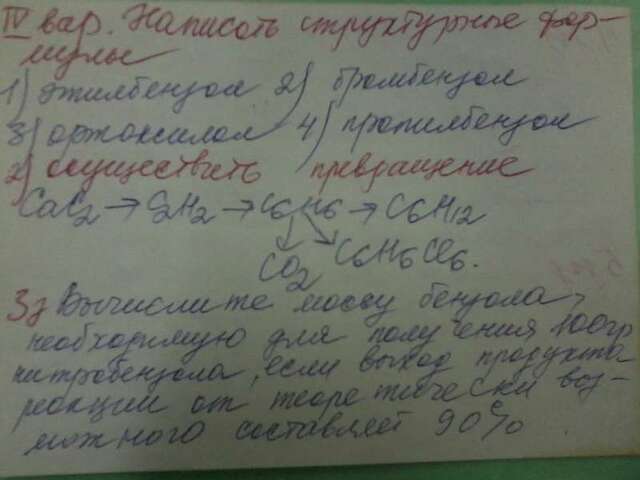 IV вар. Написать структурные фор-
мулы
1) этилбензол 2) бромбензол
3) ортоксилол 4) пропилбензол
2) осуществить превращение
CaC2 → C2H2 → C6H6 → C6H12
CO2 C6H6Cl6.
3) Вычислите массу бензола,
необходимую для получения 100гр
нитробензола, если выход продукта
реакции от теоретически воз-
можного составляет 90%